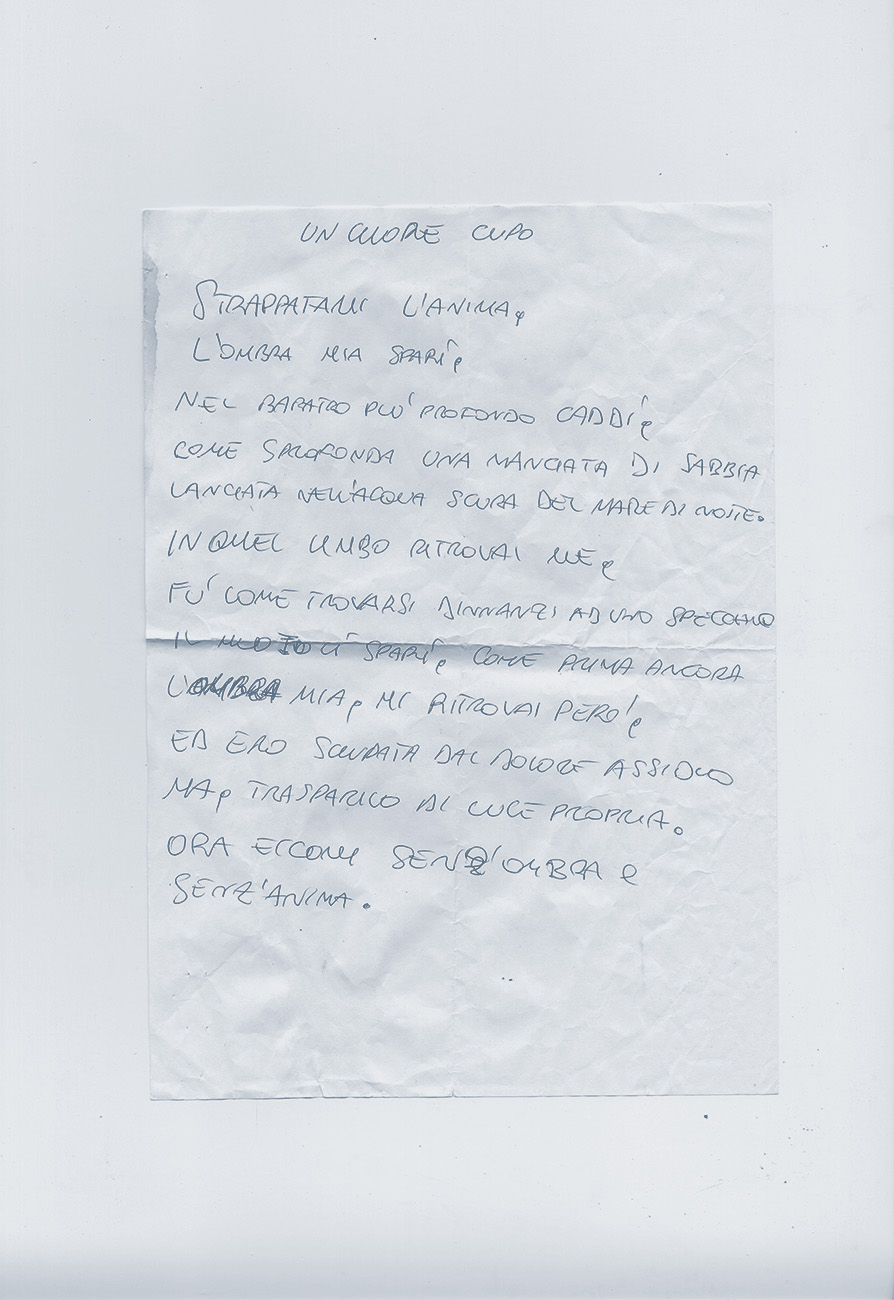 UN CUORE CUPO
STRAPPATAMI L'ANIMA,
L'OMBRA MIA SPARÌ,
NEL BARATRO PIU' PROFONDO CADDI,
COME SPROFONDA UNA MANCIATA DI SABBIA
LANCIATA NELL'ACQUA SCURA DEL MARE DI NOTTE.
IN QUEL LIMBO RITROVAI ME,
FU' COME TROVARSI DINNANZI AD UNO SPECCHIO
IL MIO IO LÌ SPARÌ, COME PRIMA ANCORA
L'OMBRA MIA, MI RITROVAI PERO',
ED ERO SCIUPATA DAL DOLORE ASSIDUO
MA, TRASPARIVO DI LUCE PROPRIA.
ORA ECCOMI SENZ'OMBRA E
SENZ'ANIMA.